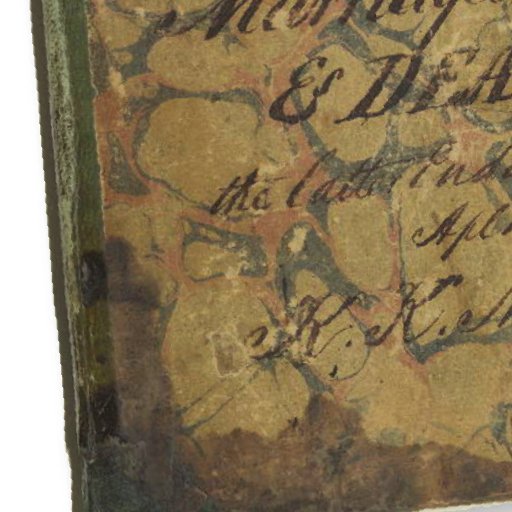 Marriages
& DEA
the latter End
Ap
K. K.